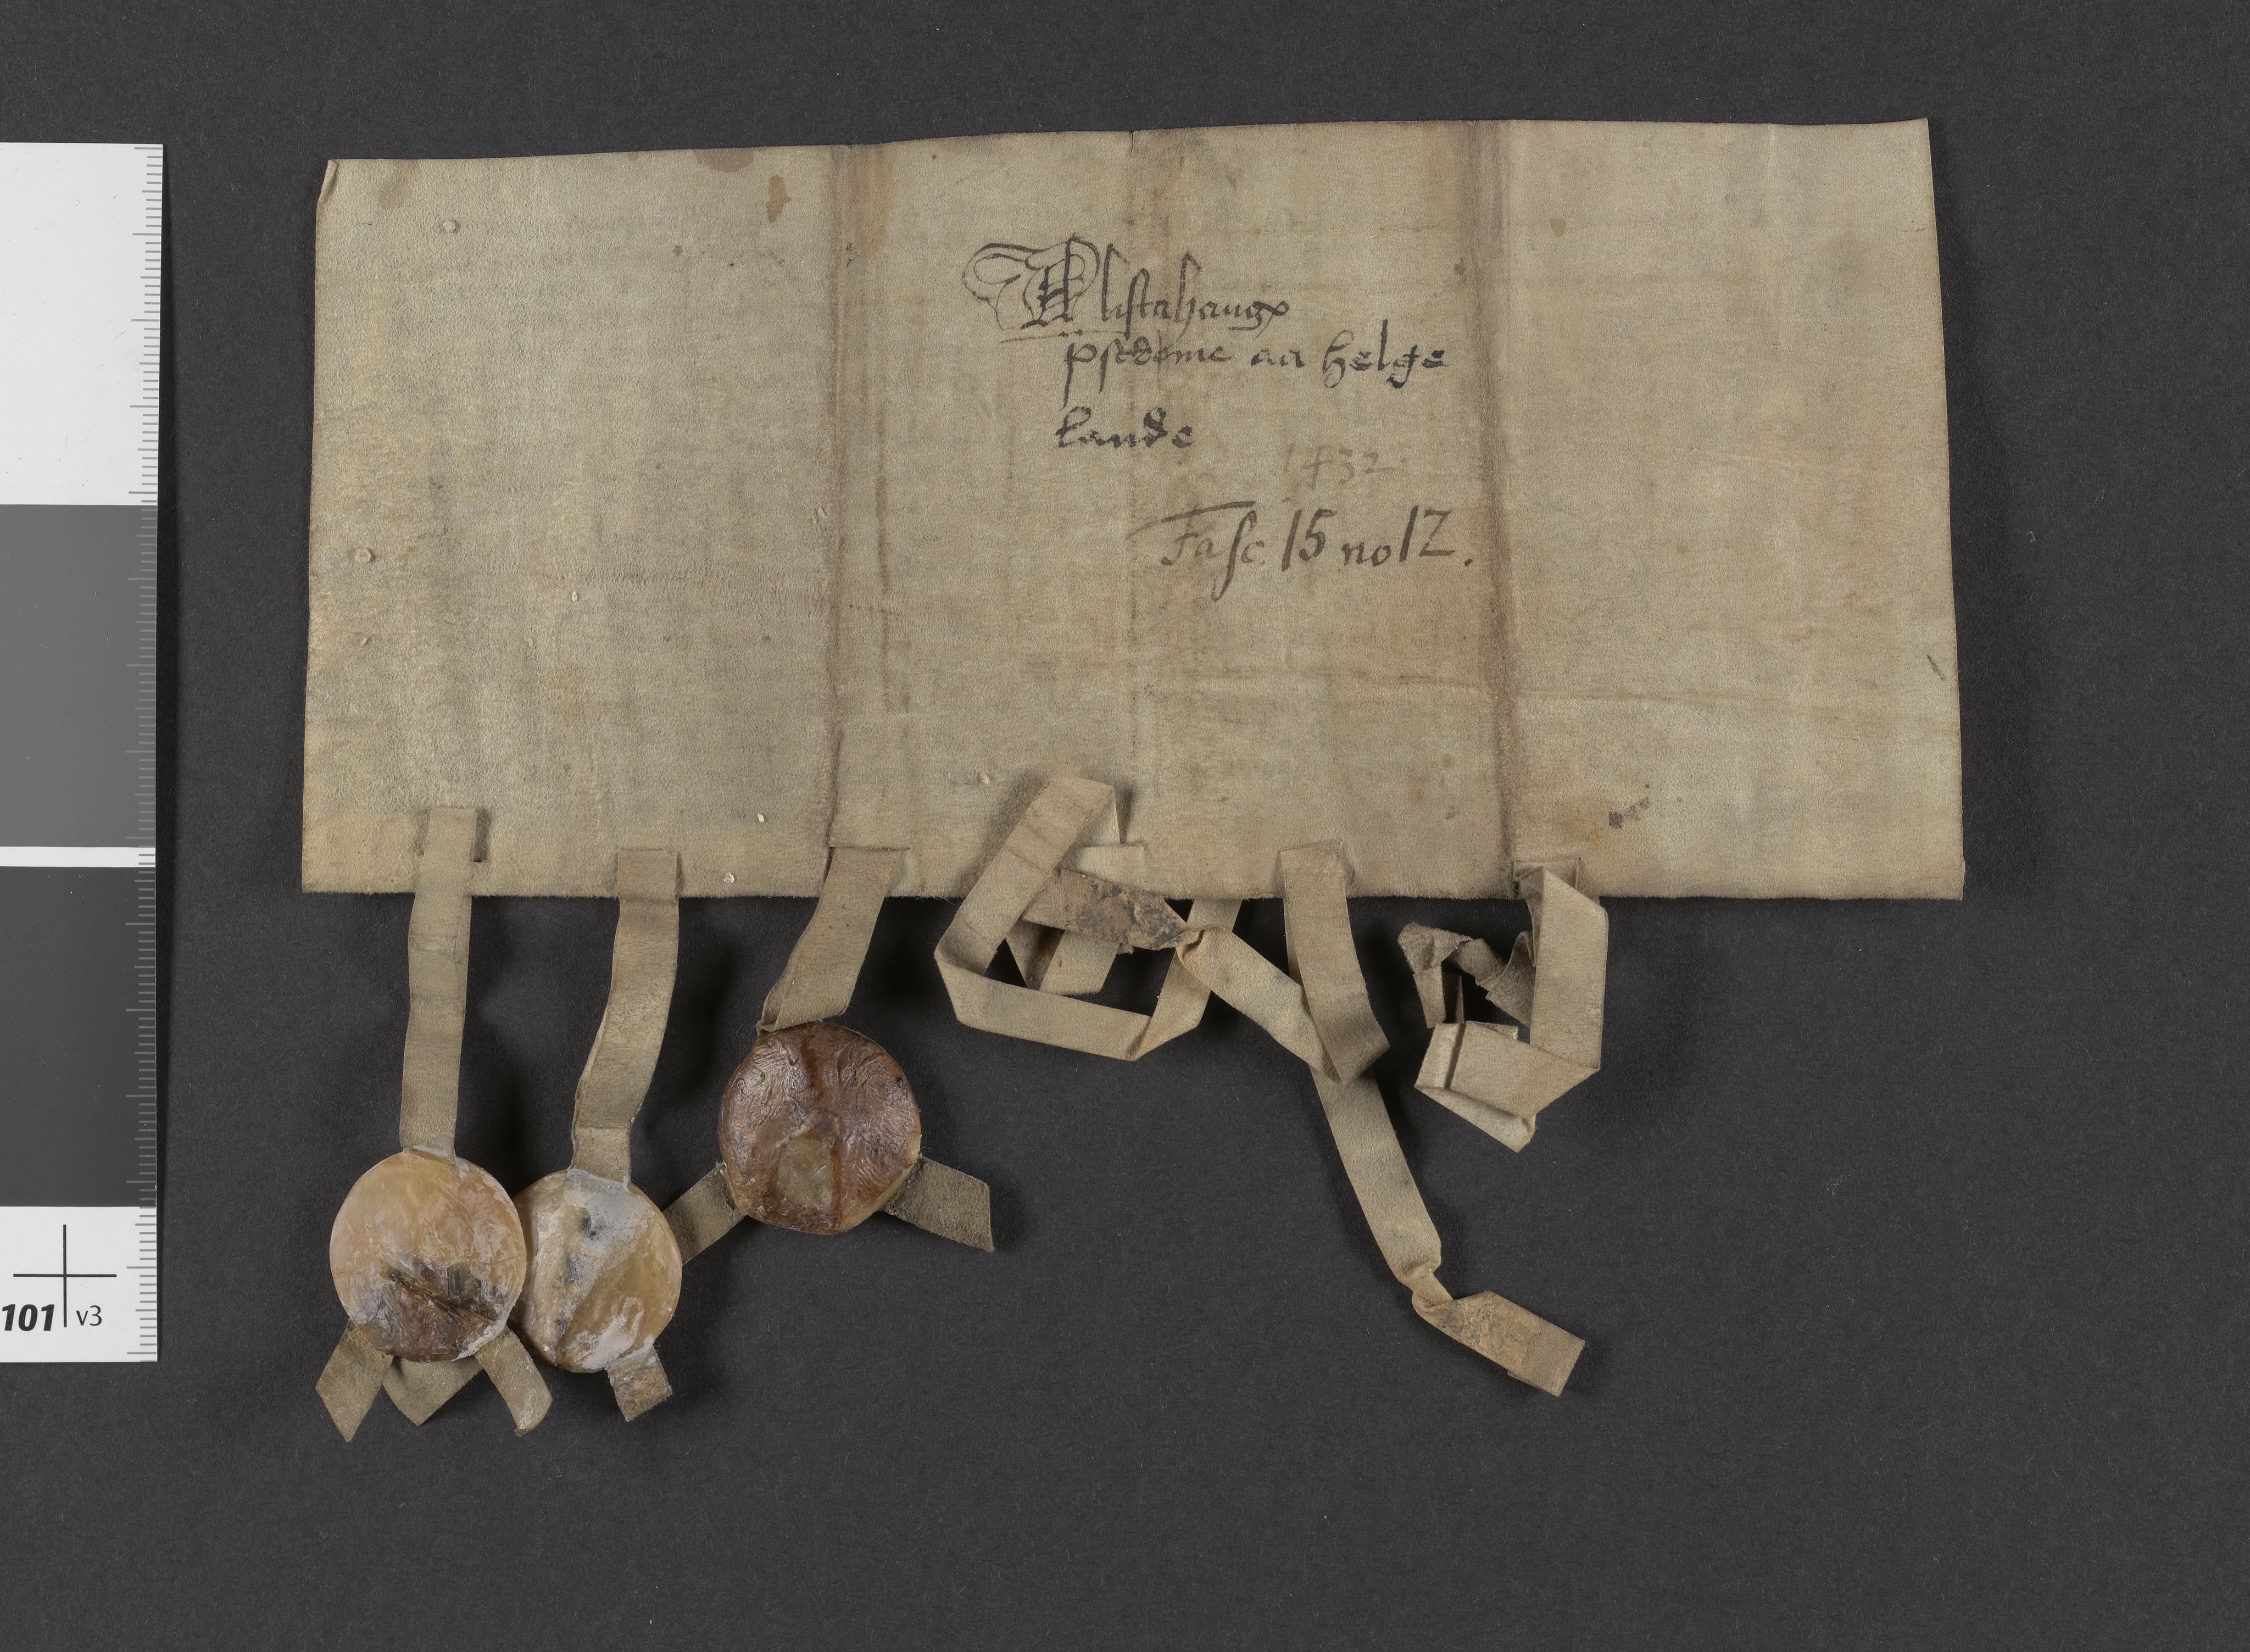 Alistahaugx
p̄stdome aa helge
lande
1432.
Fasc. 15 no 12.
101 v3